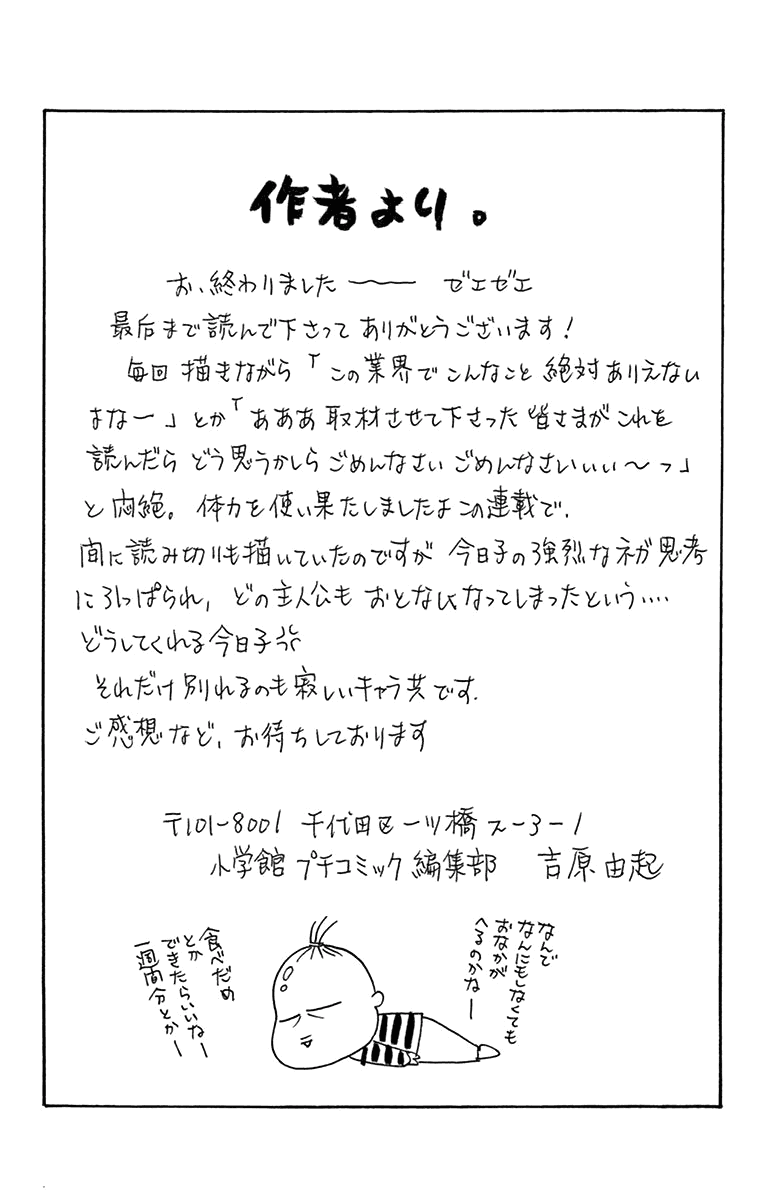 作者より。
お、終わりました〜〜 ゼエゼエ
最后まで読んで下さって ありがとうございます!
毎回 描きながら「この業界で こんなこと 絶対 ありえない
よなー」とか「あああ 取材させて下さった 皆さまが これを
読んだら どう思うかしら ごめんなさい ごめんなさいぃぃ〜っ」
と 悶絶。 体力を使い果たしましたよ この連載で.
間に読み切りも描いていたのですが 今日子の強烈なネガ思考
に引っぱられ, どの主人公も おとなしくなってしまったという‥‥
どうしてくれる今日子
それだけ 別れるのも 寂しいキャラ共です.
ご感想など, お待ちしております
〒101-8001 千代田区一ツ橋 2-3-1
小学館 プチコミック 編集部 吉原由起
なんで
なんにもしなくても
おなかが
へるのかなー
食べだめ
とか
できたらいいなー
一週間分とかー